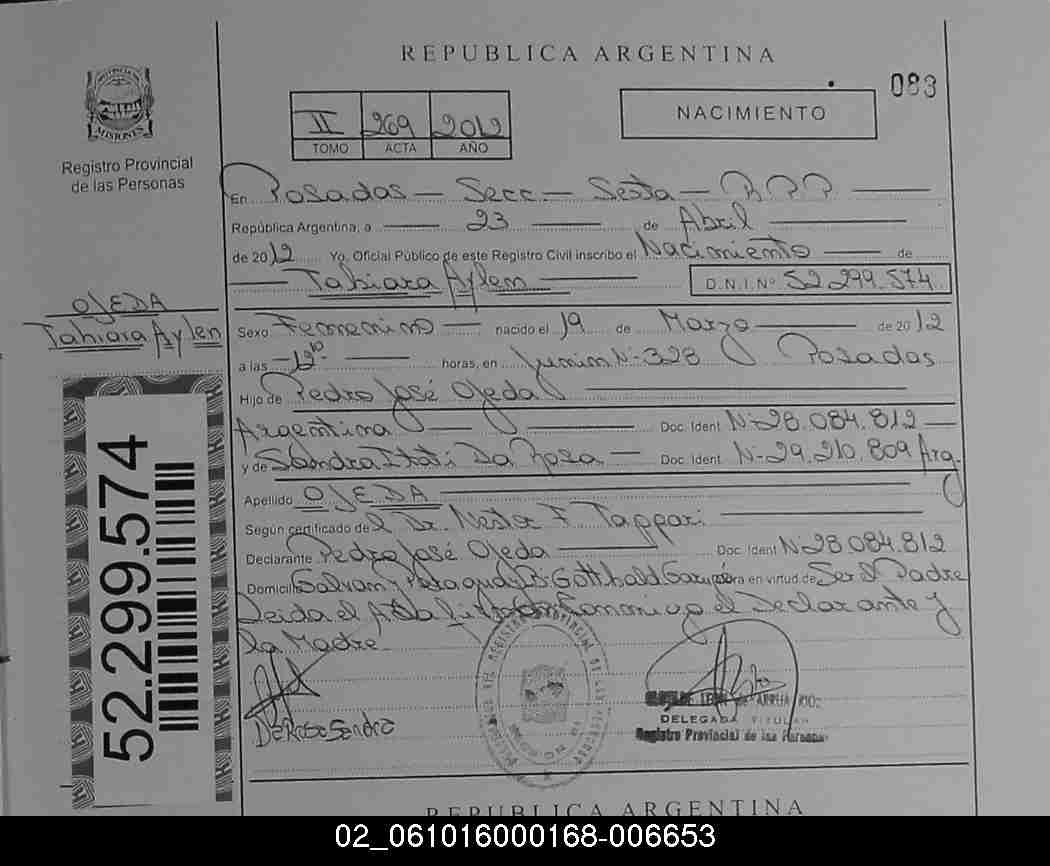 REPUBLICA ARGENTINA
083
PROVINCIA DE
MISIONES
Registro Provincial
de las Personas
II 269 2012
TOMO ACTA AÑO
NACIMIENTO
En Posadas — Secc. — Sexta — R P P
República Argentina, a 23 de Abril
de 2012 Yo, Oficial Público de este Registro Civil inscribo el Nacimiento de
Tahiara Aylen D.N.I.Nº 52.299.574
OJEDA
Tahiara Aylen
Sexo Femenino nacido el 19 de Marzo de 2012
a las 12 10 horas, en Junin Nº 328 Posadas
Hijo de Pedro José Ojeda
Argentina Doc. Ident. Nº 28.084.812
y de Sandra Itatí Da Rosa Doc. Ident. Nº 29.210.809 Arg.
Apellido OJEDA
Según certificado del Dr. Nestor F. Tappari
Declarante Pedro José Ojeda Doc. Ident. Nº 28.084.812
Domicilio Galvan y Paraguay Bº Gotthald Obra en virtud de Ser el Padre
Leida el Acta la Conmigo el Declarante y
la Madre.
DaRosa Sandra
DELEGADA TITULAR
Registro Provincial de las Personas
52.299.574
REPUBLICA ARGENTINA
02_061016000168-006653